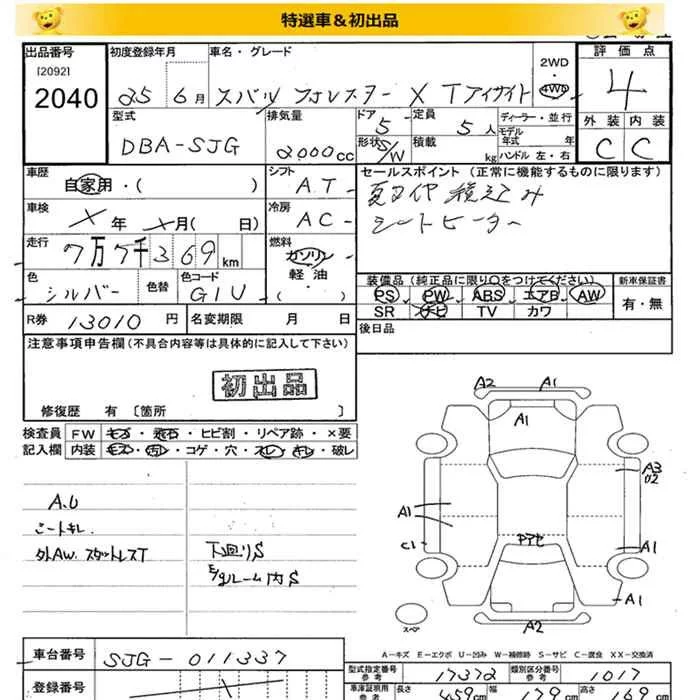 特選車＆初出品
出品番号 初度登録年月 車名・グレード 2WD・4WD 評価点
[2092]
2040 25 6月 スバル フォレスター X Tアイサイト 4
型式 排気量 ドア 定員 ディーラー・並行 外装 内装
DBA-SJG 2000cc 5 5人 モデル年式 年 C C
形状 S/W 積載 kg ハンドル 左・右
車歴 シフト セールスポイント（正常に機能するものに限ります）
自家用・( ) AT 夏タイヤ積込み
車検 X年 X月( 日) 冷房 AC シートヒーター
走行 7万7千369km 燃料 ガソリン
軽油 装備品（純正品に限り○をつけてください） 新車保証書
色 色替 色コード ・( ) PS PW ABS エアB AW 有・無
シルバー G1U SR ナビ TV カワ
R券 13010円 名変期限 月 日 後日品
注意事項申告欄(不具合内容等は具体的に記入して下さい)
初出品
修復歴 有〔箇所 〕
検査員 FW キズ・飛石・ヒビ割・リペア跡・×要
記入欄 内装 キズ・汚レ・コゲ・穴・スレ・キレ・破レ
A2 A1
A1
A.U
シートキレ
外AW.スタットレスT
下廻りS
E/gルーム内S
A3
02
A1
C1
アセ
A1
A1
A2
スペア
A－キズ E－エクボ U－凹み W－補修跡 S－サビ C－腐食 XX－交換済
車台番号 SJG-011337 型式指定番号 参考 17372 類別区分番号 参考 1017
登録番号 車庫証明用 参考 長さ 459cm 幅 179cm 高さ 169cm